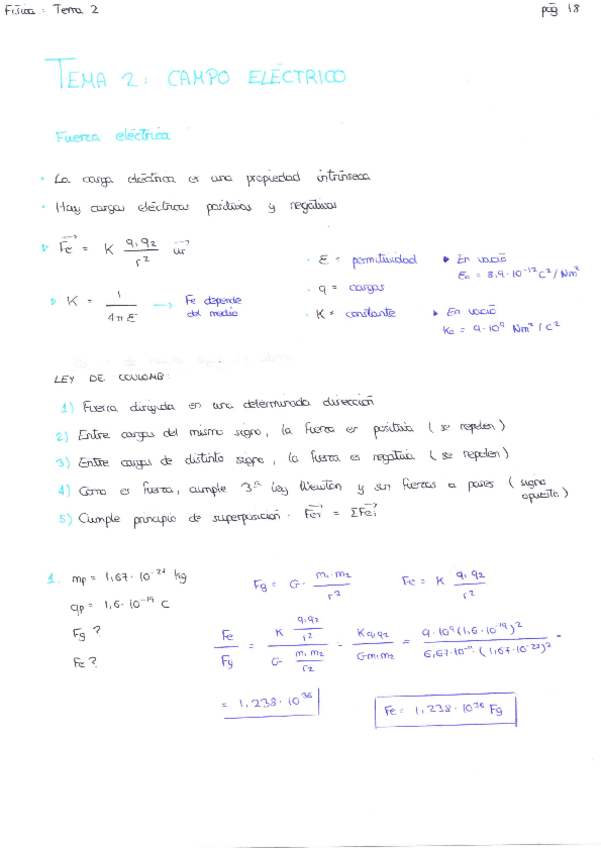 Física: Tema 2 pág 18
TEMA 2: CAMPO ELÉCTRICO
Fuerza eléctrica
· La carga eléctrica es una propiedad intrínseca
· Hay cargas eléctricas positivas y negativas
Fe = K q1 q2 / r² ur
K = 1 / 4πE → Fe depende del medio
· E = permitividad ▸ En vacío E0 = 8,9·10⁻¹² C²/Nm²
· q = cargas
· K = constante ▸ En vacío K0 = 9·10⁹ Nm²/C²
LEY DE COULOMB:
1) Fuerza dirigida en una determinada dirección
2) Entre cargas del mismo signo, la fuerza es positiva (se repelen)
3) Entre cargas de distinto signo, la fuerza es negativa (se repelen)
4) Como es fuerza, cumple 3ª ley Newton y son fuerzas a pares (signo opuesto)
5) Cumple principio de superposición. FeT = ΣFei
1. mp = 1,67·10⁻²⁷ kg
qp = 1,6·10⁻¹⁹ C
Fg?
Fe?
Fg = G· m1·m2 / r² Fe = K q1 q2 / r²
Fe / Fg = K q1 q2 / r² / G m1 m2 / r² = K q1 q2 / G m1 m2 = 9·10⁹ (1,6·10⁻¹⁹)² / 6,67·10⁻¹¹·(1,67·10⁻²⁷)² =
= 1,238·10³⁶
Fe = 1,238·10³⁶ Fg